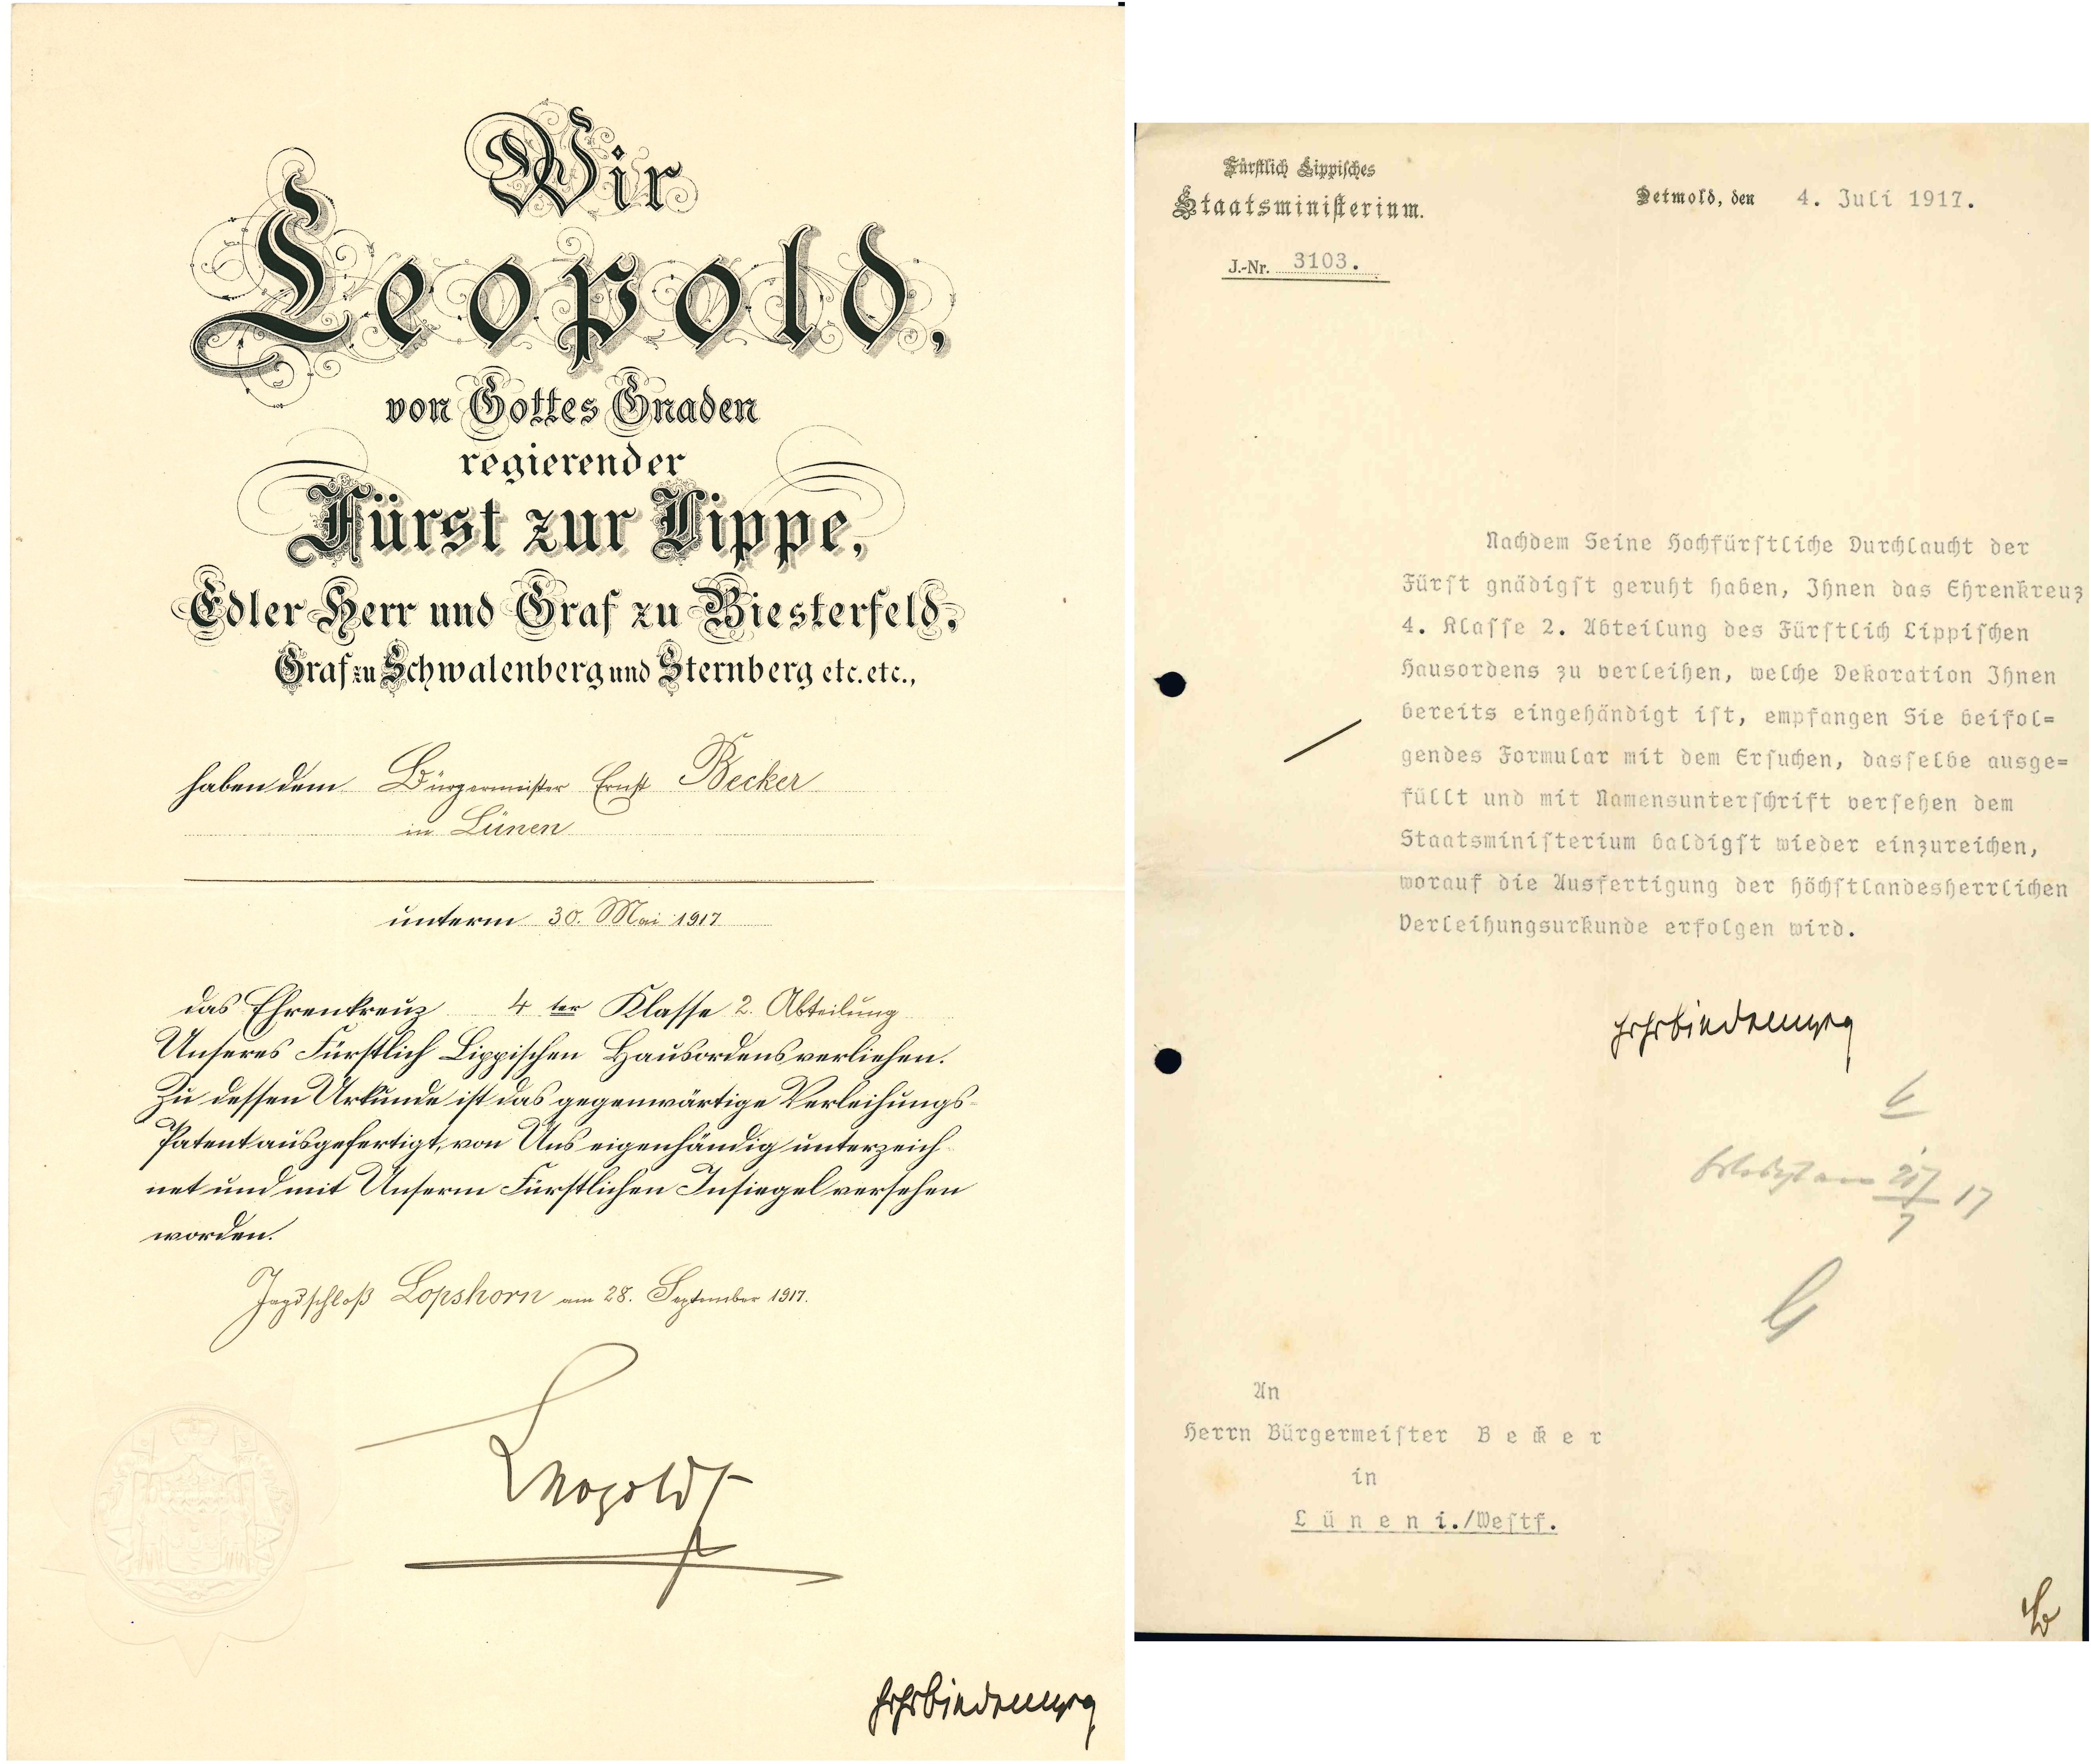 Wir
Leopold,
von Gottes Gnaden
regierender
Fürst zur Lippe,
Edler Herr und Graf zu Biesterfeld,
Graf zu Schwalenberg und Sternberg etc. etc.,
haben dem Bürgermeister Ernst Becker
in Lünen
unterm 30. Mai 1917
das Ehrenkreuz 4 ter Klasse 2. Abteilung
Unseres Fürstlich Lippischen Hausordens verliehen.
Zu dessen Urkunde ist das gegenwärtige Verleihungs-
Patent ausgefertigt, von Uns eigenhändig unterzeich-
net und mit Unserm Fürstlichen Insiegel versehen
worden.
Jagdschloß Lopshorn am 28. September 1917.
Leopold
Fürstlich Lippisches
Staatsministerium.
Detmold, den 4. Juli 1917.
J.-Nr. 3103.
Nachdem Seine Hochfürstliche Durchlaucht der
Fürst gnädigst geruht haben, Ihnen das Ehrenkreuz
4. Klasse 2. Abteilung des Fürstlich Lippischen
Hausordens zu verleihen, welche Dekoration Ihnen
bereits eingehändigt ist, empfangen Sie beifol=
gendes Formular mit dem Ersuchen, dasselbe ausge=
füllt und mit Namensunterschrift versehen dem
Staatsministerium baldigst wieder einzureichen,
worauf die Ausfertigung der höchstlandesherrlichen
Verleihungsurkunde erfolgen wird.
An
Herrn Bürgermeister B e ck e r
in
L ü n e n i./Westf.